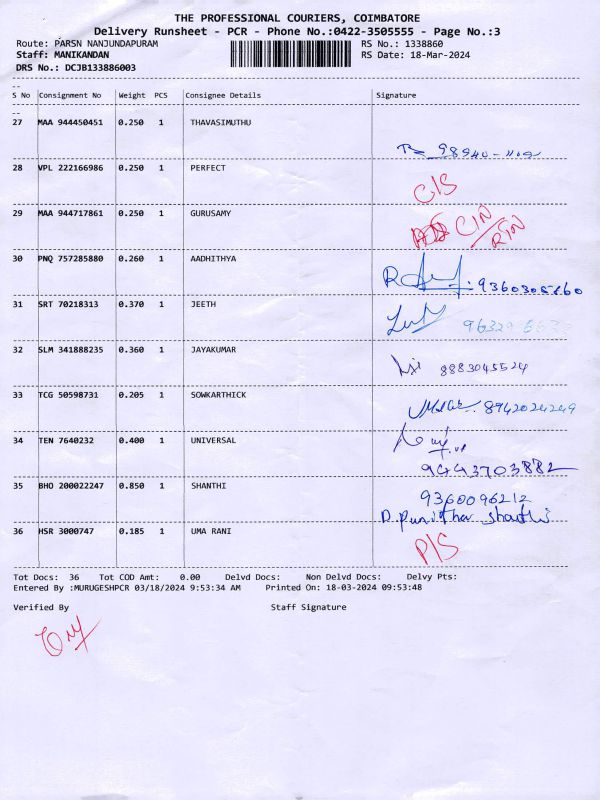 THE PROFESSIONAL COURIERS, COIMBATORE
Delivery Runsheet - PCR - Phone No.:0422-3505555 - Page No.:3
Route: PARSN NANJUNDAPURAM RS No.: 1338860
Staff: MANIKANDAN RS Date: 18-Mar-2024
DRS No.: DCJB133886003
S No Consignment No Weight PCS Consignee Details Signature
27 MAA 944450451 0.250 1 THAVASIMUTHU
28 VPL 222166986 0.250 1 PERFECT C/S
29 MAA 944717861 0.250 1 GURUSAMY
30 PNQ 757285880 0.260 1 AADHITHYA
31 SRT 70218313 0.370 1 JEETH
32 SLM 341888235 0.360 1 JAYAKUMAR 8883045524
33 TCG 50598731 0.205 1 SOWKARTHICK 8942024249
34 TEN 7640232 0.400 1 UNIVERSAL
9443703882
35 BHO 200022247 0.850 1 SHANTHI 9360096212
36 HSR 3000747 0.185 1 UMA RANI P/S
Tot Docs: 36 Tot COD Amt: 0.00 Delvd Docs: Non Delvd Docs: Delvy Pts:
Entered By :MURUGESHPCR 03/18/2024 9:53:34 AM Printed On: 18-03-2024 09:53:48
Verified By Staff Signature